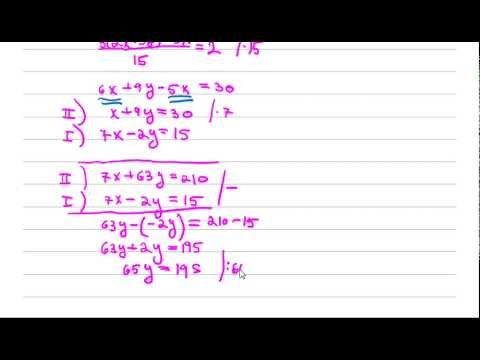 = 2 /·15
15
6x+9y-5x=30
II) x+9y=30 /·7
I) 7x-2y=15
II) 7x+63y=210
I) 7x-2y=15 /-
63y-(-2y)=210-15
63y+2y=195
65y=195 /:6